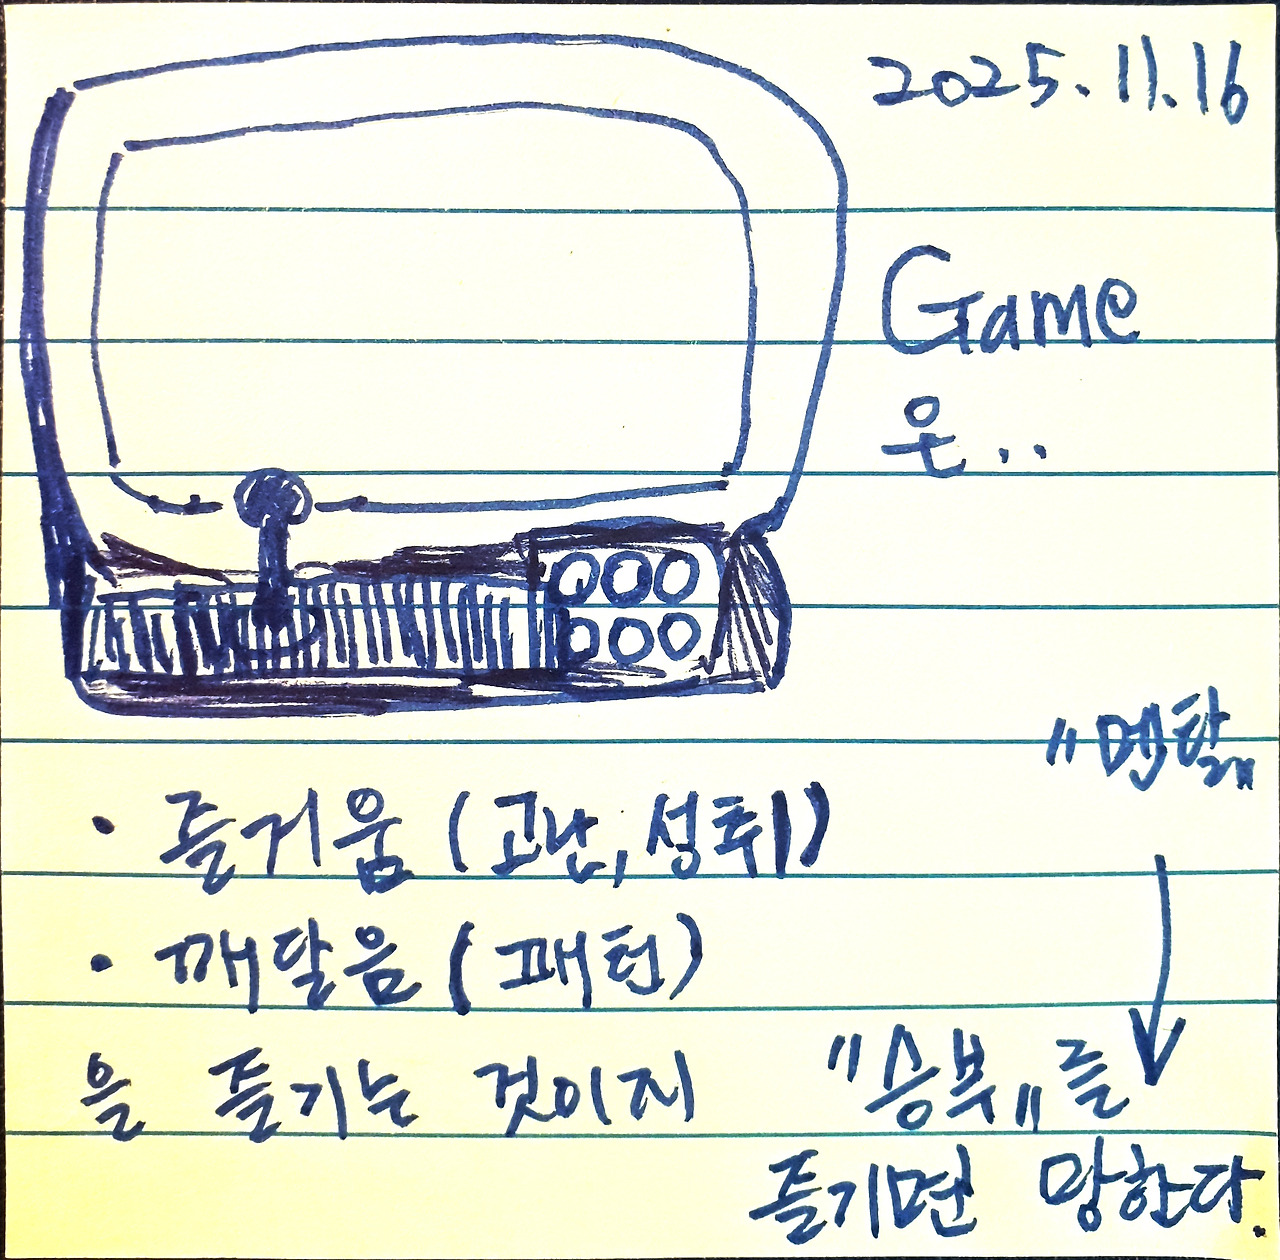 2025.11.16
Game
은..
"멘탈"
· 즐거움 (고난, 성취)
· 깨달음 (패턴)
을 즐기는 것이지 "승부"를
즐기면 망한다.